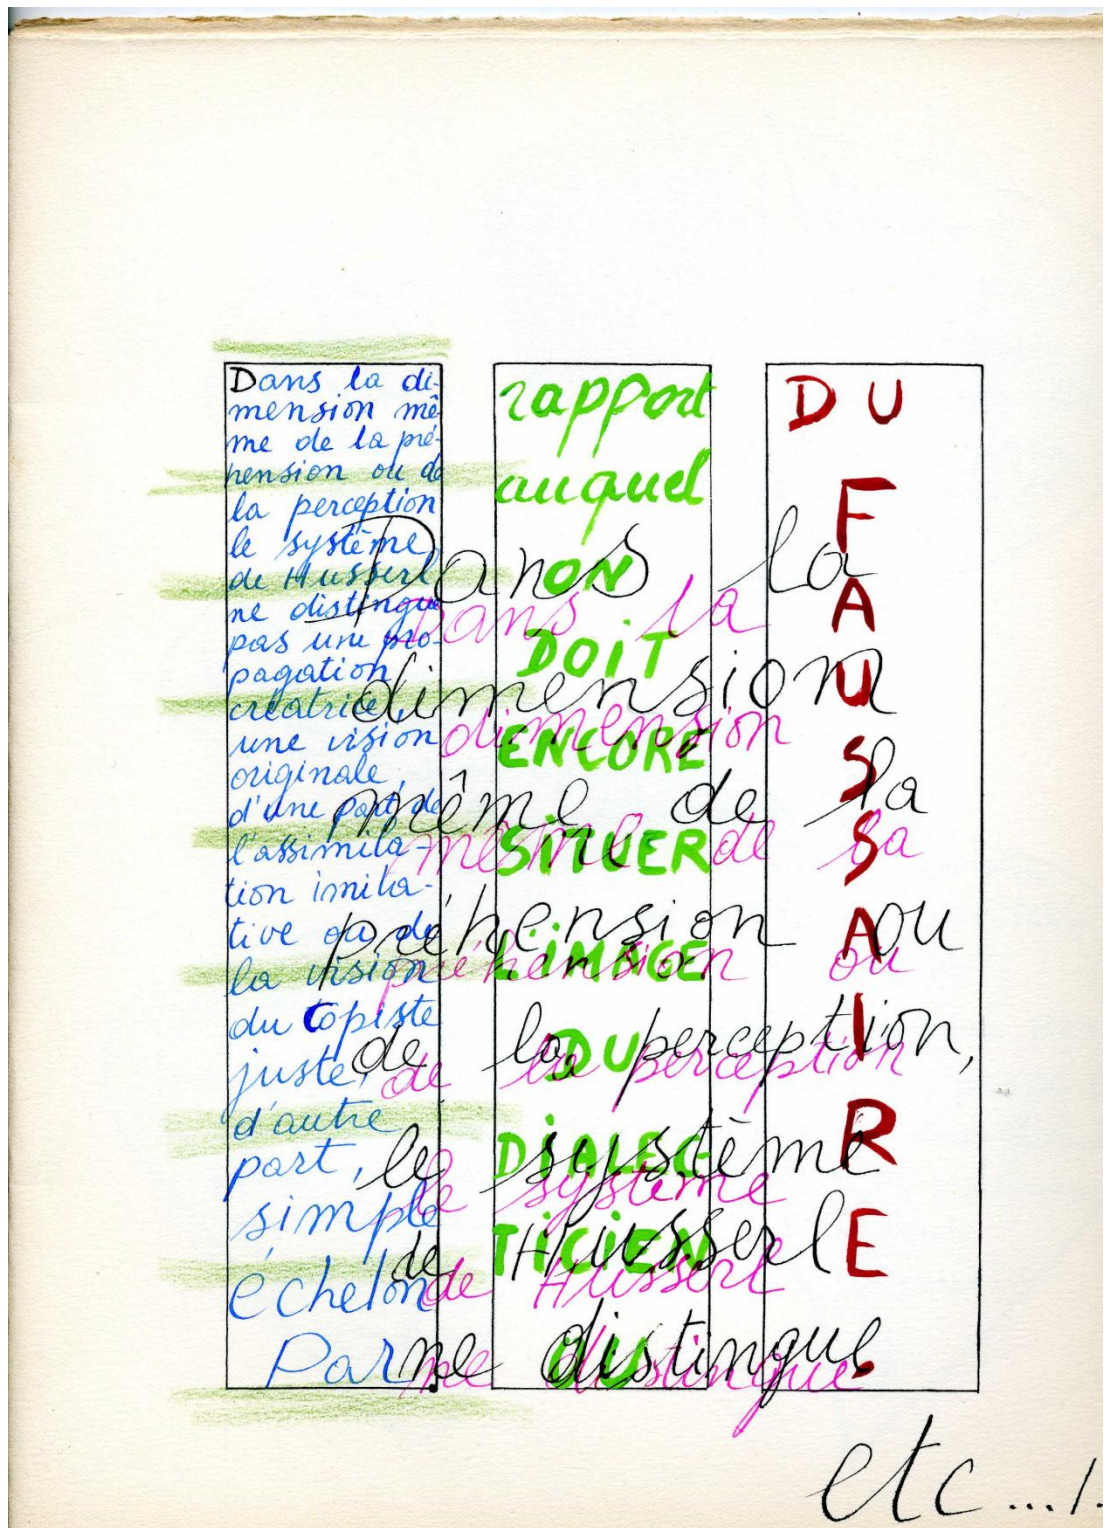 Dans la di-
mension mê-
me de la pré-
hension ou de
la perception
le système
de Husserl
ne distingue
pas une pro-
pagation
créatrice,
une vision
originale,
d'une part de
l'assimila-
tion imita-
tive ou de
la vision
du copiste
juste,
d'autre
part,
simple
échelon
Par
rapport
auquel
ON
DOIT
ENCORE
SITUER
L'IMAGE
DU
DIALEC
TICIEN
OU
DU
FAUSSAIRE.
Dans la
dimension
même de la
préhension ou
de la perception,
le système
de Husserl
ne distingue
Dans la
dimension
même de la
préhension ou
de la perception
le système
de Husserl
ne distingue
etc.../.